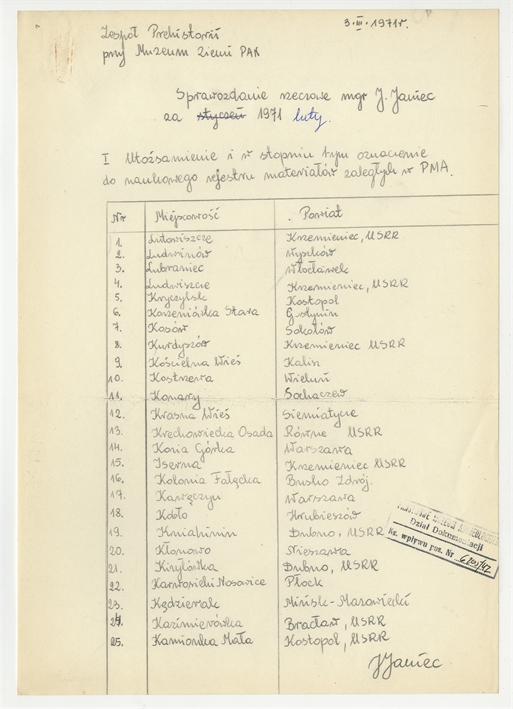 3.III.1971r.
Zespół Prehistorii
przy Muzeum Ziemi PAN
Sprawozdanie rzeczowe mgr J. Janiec
za styczeń 1971 luty.
I Utożsamienie i w stopniu tym oznaczenie
do naukowego rejestru materiałów zaległych w PMA.
Nr Miejscowość Powiat
1. Lutowiszcze Krzemieniec, USRR
2. Ludwinów Wyszków
3. Lubraniec Włocławek
4. Ludwiszcze Krzemieniec, USRR
5. Kryczylsk Kostopol
6. Korzeniówka Stara Gostynin
7. Kosów Sokołów
8. Kurdyszów Krzemieniec USRR
9. Kościelna Wieś Kalisz
10. Kostrzewa Wieluń
11. Konary Sochaczew
12. Krasna Wieś Siemiatycze
13. Krechowiecka Osada Równe USRR
14. Konia Górka Warszawa
15. Iserna Krzemieniec USRR
16. Kolonia Fałęcka Busko Zdrój.
17. Karczyn Warszawa
18. Kdło Hrubieszów
19. Kniahinin Dubno, USRR
20. Klonowo Nieszawa
21. Kiryłówka Dubno, USRR
22. Karwosieki Nosarice Płock
23. Kędzierak Mińsk-Mazowiecki
24. Kazimierówka Bracław, USRR
25. Kamionka Mała Kostopol, USRR
Dział Dokumentacji
Ks. wpływu poz. Nr
J Janiec